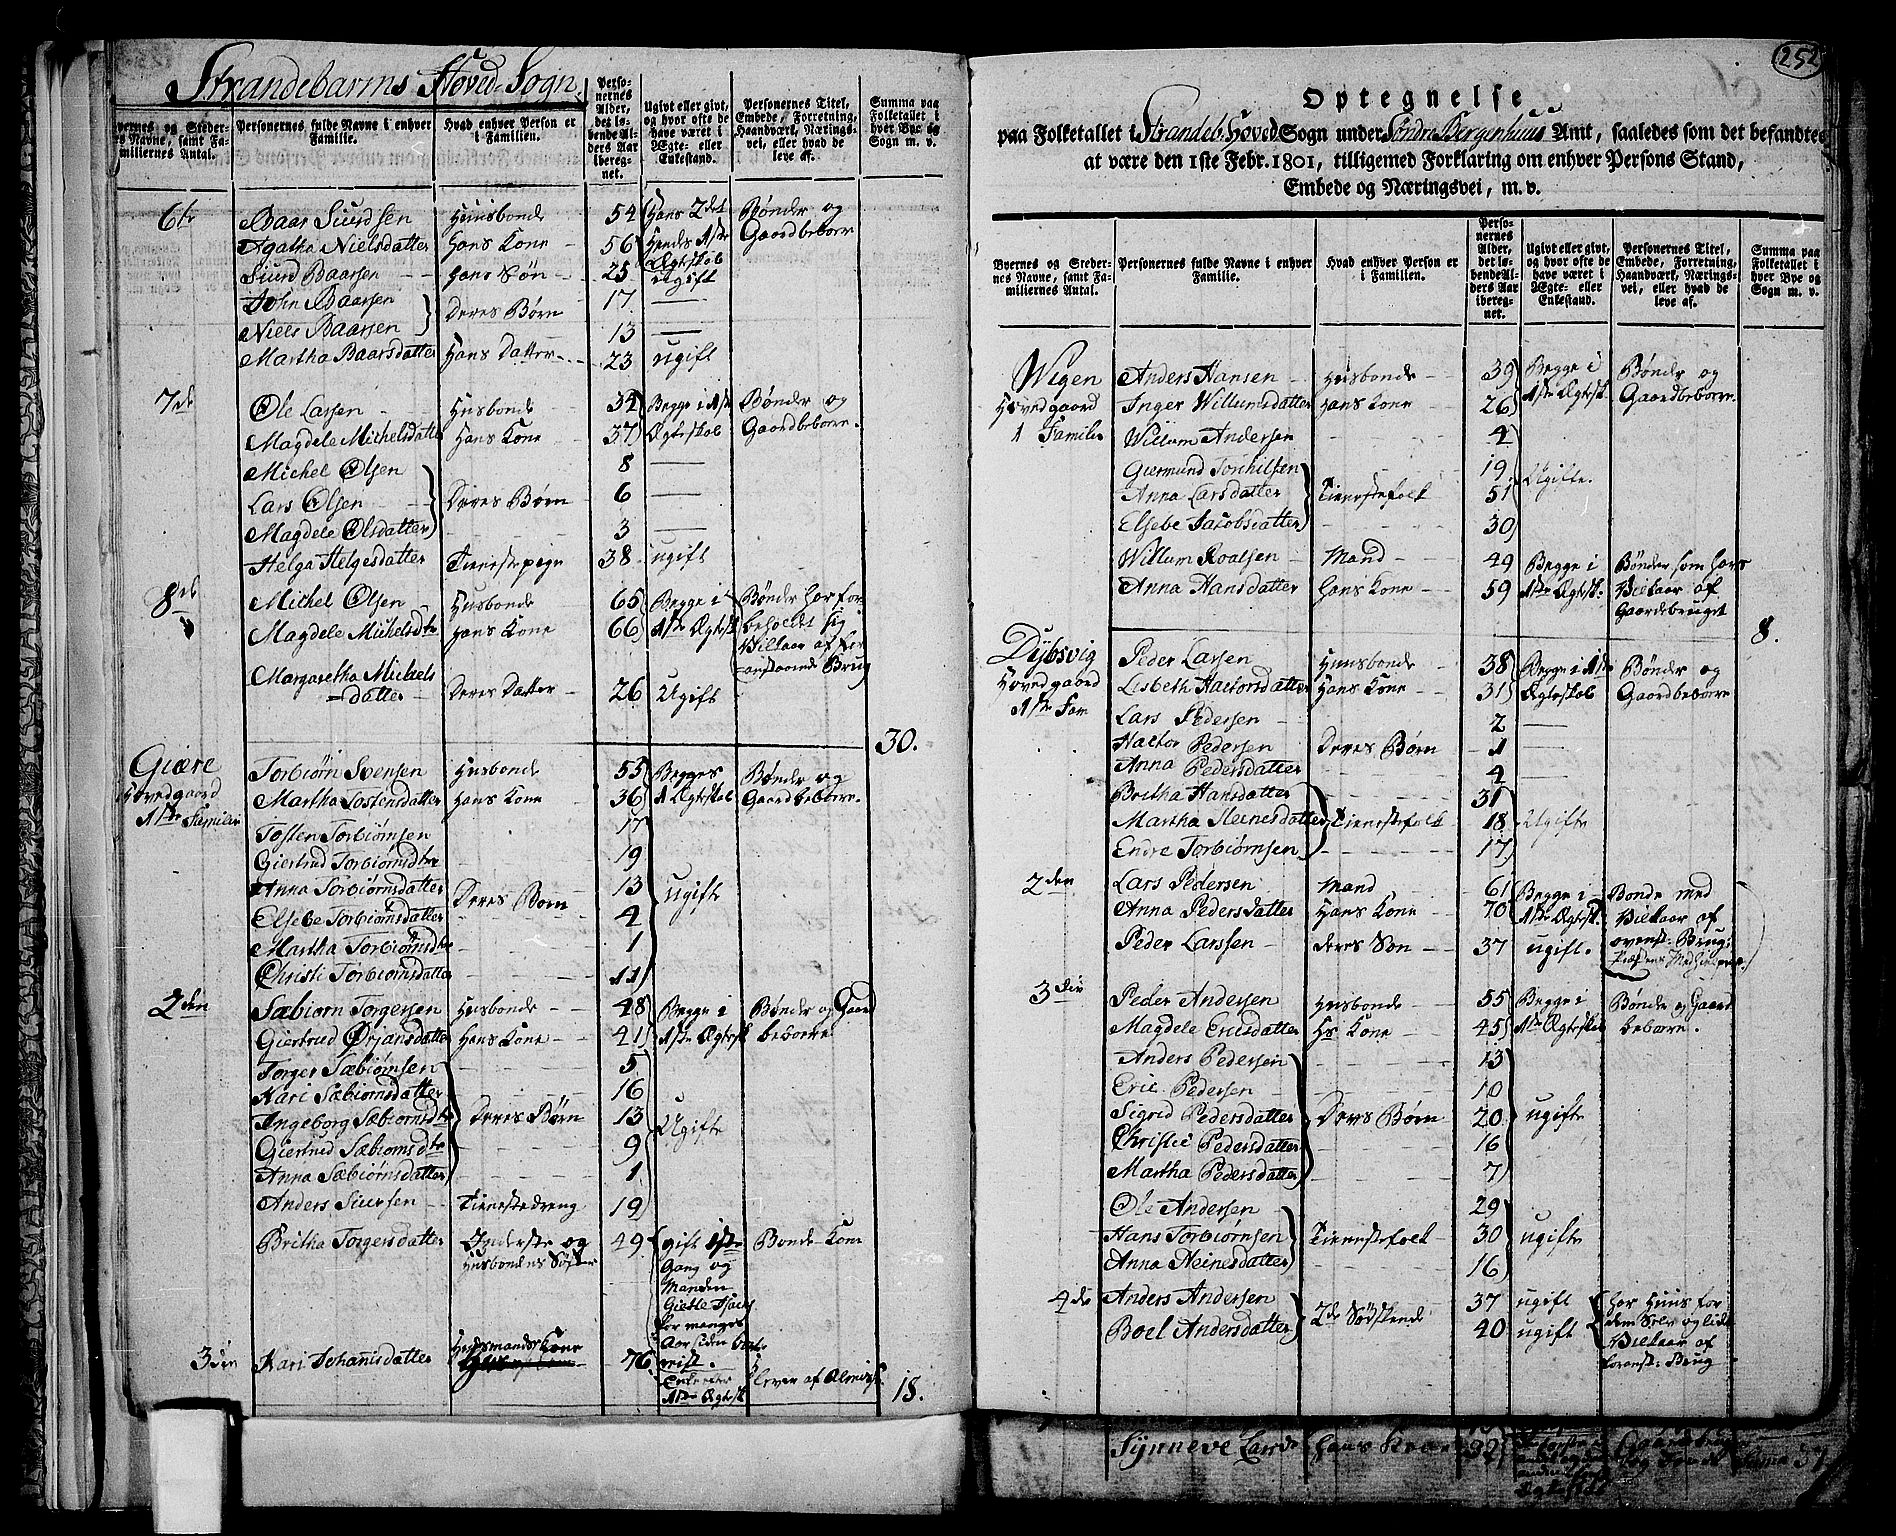 Strandebarms Hoved-Sogn.
Byernes og Steder-
nes Navne, samt Fa-
miliernes Antal.
Personernes fulde Navne i enhver
Familie.
Hvad enhver Person er
i Familien.
Perso-
nernes
Alder,
det lø-
bende Al-
ders Aar
iberegnet.
Ugivt eller givt,
og hvor ofte de
have været i
Ægte- eller
Enkestand.
Personernes Titel,
Embede, Forretning,
Haandværk, Nærings-
vei, eller hvad de
leve af.
Summa paa
Folketallet i
hver Bye og
Sogn m. v.
6te Baar Siursen Huusbonde 54 Hans 2det Bønder og
Agatha Nielsdatter Hans Kone 56 Hendes 1ste Gaardbeboere
Siurd Baarsen Hans Søn 25 Ægteskab Ugift
John Baarsen 17
Deres Børn
Niels Baarsen 13
Martha Baarsdatter Hans Datter 23 ugift
7de Ole Larsen Husbonde 34 Begge i 1ste Bønder og
Magdele Michelsdatter Hans Kone 37 Ægteskab Gaardbeboere.
Michel Olsen 8
Lars Olsen Deres Børn 6
Magdele Olsdatter 3
Helga Helgesdatter Tienestepige 38 ugift
8de Michel Olsen Husbonde 65 Begge i Bønder har for
Magdele Michelsdtr Hans Kone 66 1ste Ægtesk beholdt sig
Vilkaar af for
anstaaende Brug
Margaretha Michels
=datter Deres Datter 26 Ugift
30.
Giære Torbiørn Svensen Husbonde 55 Begges Bønder og
Hovedgaard Martha Tostensdatter Hans Kone 36 1 Ægteskab Gaardbeboere.
1ste Familie Tosten Torbiørnsen 17
Giertrud Torbiørnsdtr 19
Anna Torbiørnsdatter Deres Børn 13 ugift
Elsebe Torbiørnsdatter 4
Martha Torbiørnsdtr 1
Christi Torbiørnsdatter 11
2den Sæbiørn Torgersen Husbonde 48 Begge i Bønder og Gaard
Giertrud Ørjansdatter Hans Kone 41 1ste Ægtesk beboere
Torger Sæbiørnsen 5
Kari Sæbiørnsdatter 16
Ingeborg Sæbiørnsdtr Deres Børn 13 Ugifte
Giertrud Sæbiørnsdtr 9
Anna Sæbiørnsdatter 1
Anders Siursen Tienestedreng 19
Britha Torgersdatter Inderste og 49 gift 1ste Bonde-Kone
Husbondens Søster Gang og
Manden
for mange
Aar siden
3die Kari Johannisdatter Huusmands Kone 76 lever af Almisse
1ste Ægtesk
18.
252
Optegnelse
paa Folketallet i Strandeb. Hoved Sogn under Søndre Bergenhuus Amt, saaledes som det befandtes
at være den 1ste Febr. 1801, tilligemed Forklaring om enhver Persons Stand,
Embede og Næringsvei, m. v.
Byernes og Steder-
nes Navne, samt Fa-
miliernes Antal.
Personernes fulde Navne i enhver
Familie.
Hvad enhver Person er
i Familien.
Perso-
nernes
Alder,
det lø-
bende Al-
ders Aar
iberegnet.
Ugivt eller givt,
og hvor ofte de
have været i
Ægte- eller
Enkestand.
Personernes Titel,
Embede, Forretning,
Haandværk, Nærings-
vei, eller hvad de
leve af.
Summa paa
Folketallet i
hver Bye og
Sogn m. v.
Wigen Anders Hansen Husbonde 39 Begge i Bønder og
Hovedgaard Inger Willumsdatter Hans Kone 26 1ste Ægtesk. Gaardbeboere.
1 Familie Willum Andersen 4
Giermund Torkilsen 19
Anna Larsdatter Tienestefolk 51 Ugifte.
Elsebe Jacobsdatter 30
Willum Roalsen Mand 49 Begge i Bønder som hars
Anna Hansdatter Hans Kone 59 1ste Ægtesk: Vilkaar af
Gaardsbruget
8.
Dybsvig Peder Larsen Huusbonde 38 Begge i 1ste Bønder og
Hovedgaard Lisbeth Haktorsdatter Hans Kone 31 Ægteskab Gaardbeboere
1ste Fam Lars Pedersen 2
Haktor Pedersen Deres Børn 1
Anna Pedersdatter 4
Britha Hansdatter 31
Martha Heinesdatter Tienestefolk 18 Ugifte
Endre Torbiørnsen 17
2den Lars Pedersen Mand 61 Begge i Bonde med
Anna Pedersdatter Hans Kone 70 1ste Ægtesk. Vilkaar af
Peder Larssen deres Søn 37 ugift. ovenst: Brug;
3die Peder Andersen Husbonde 55 Begge i Bønde og Gaard
Magdele Ericsdatter Hs Kone 45 1ste Ægteskab beboere.
Anders Pedersen 13
Eric Pedersen 10
Sigrid Pedersdatter Deres Børn 20 ugifte
Christi Pedersdatter 16
Martha Pedersdatter 7
Ole Andersen 29
Hans Torbiørnsen Tienestefolk 30 ugifte
Anna Heinesdatter 16
4de Anders Andersen 37 ugift har Huus for
2de Sødskende dem Selv og lidt
Boel Andersdatter 40 ugift Vilkaar af
foranst: Brug
Synneve Larsdr Hans Kone 32
37